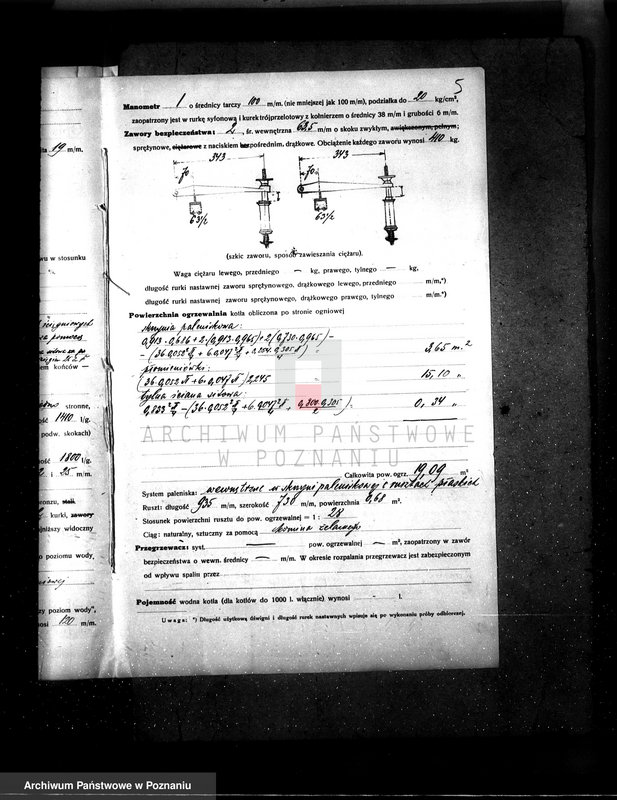 5
Manometr 1 o średnicy tarczy 100 m/m. (nie mniejszej jak 100 m/m), podziałka do 20 kg/cm²,
zaopatrzony jest w rurkę syfonową i kurek trójprzelotowy z kołnierzem o średnicy 38 m/m i grubości 6 m/m.
Zawory bezpieczeństwa: 2, śr. wewnętrzna 63.5 m/m o skoku zwykłym, zwiększonym, pełnym;
sprężynowe, ciężarowe z naciskiem bezpośrednim, drążkowe. Obciążenie każdego zaworu wynosi 410 kg.
343 343
70 70
63½ 63½
(szkic zaworu, sposób zawieszania ciężaru).
Waga ciężaru lewego, przedniego — kg, prawego, tylnego — kg,
długość rurki nastawnej zaworu sprężynowego, drążkowego lewego, przedniego m/m,*)
długość rurki nastawnej zaworu sprężynowego, drążkowego prawego, tylnego m/m,*)
Powierzchnia ogrzewalna kotła obliczona po stronie ogniowej
skrzynia paleniskowa:
3,65 m.²
płomieniówki:
15,10 "
tylna ściana sitowa:
0,34 "
ARCHIWUM PAŃSTWOWE
W POZNANIU
Całkowita pow. ogrz. 19,09 m²
System paleniska: wewnętrzne w skrzyni paleniskowej z rusztach płaskich
Ruszt: długość 935 m/m, szerokość 730 m/m, powierzchnia 0,68 m².
Stosunek powierzchni rusztu do pow. ogrzewalnej = 1 : 28
Ciąg: naturalny, sztuczny za pomocą komina żelaznego
Przegrzewacz: syst. — pow. ogrzewalnej — m², zaopatrzony w zawór
bezpieczeństwa o wewn. średnicy — m/m. W okresie rozpalania przegrzewacz jest zabezpieczonym
od wpływu spalin przez
Pojemność wodna kotła (dla kotłów do 1000 l. włącznie) wynosi - l.
Uwaga: *) Długość użytkową dźwigni i długość rurek nastawnych wpisuje się po wykonaniu próby odbiorczej.
19 m/m.
w stosunku
końców —
stronne,
1410 l/g.
podw. skokach)
1800 l/g.
i 25 m/m.
kurki, zawory
widoczny
poziomu wody,
poziom wody",
120 m/m.
Archiwum Państwowe w Poznaniu